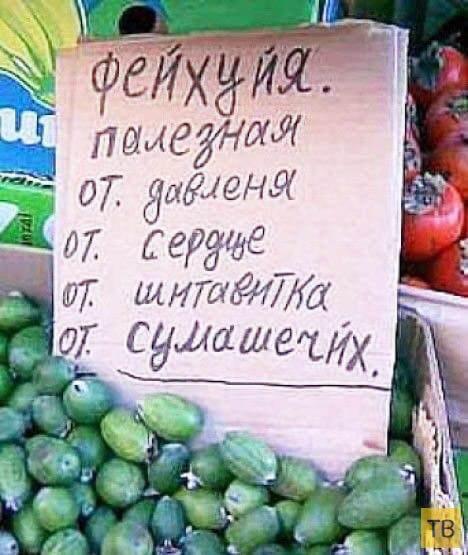 фейхуйя.
палезная
от. давленя
от. сердце
от. шитавитка
от. сумашечйх.
ТВ